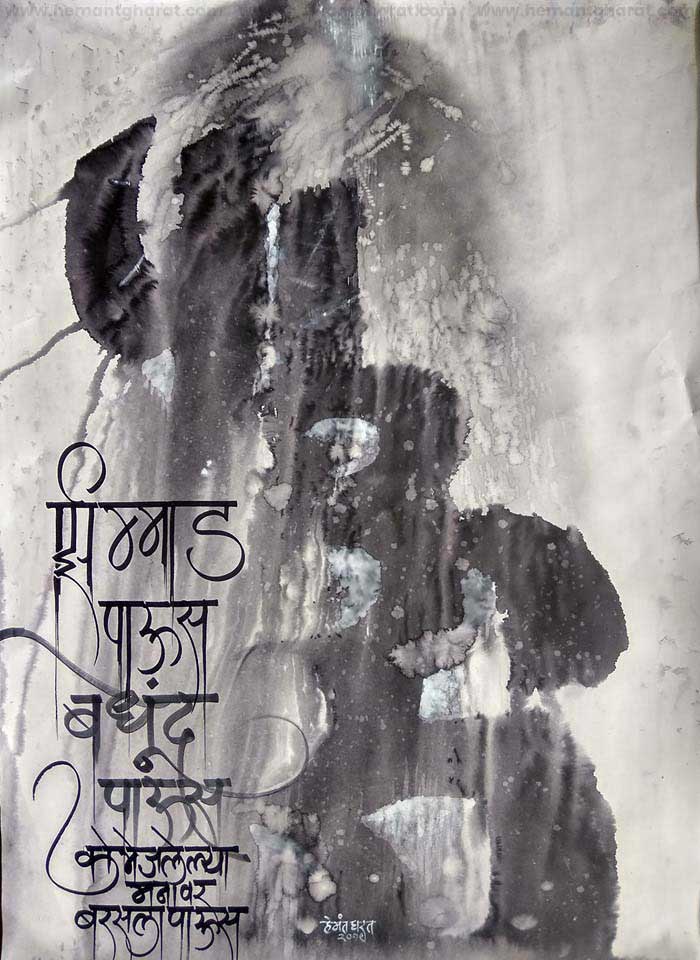 www.hemantgharat.com www.hemantgharat.com www.hemantgharat.com
झिम्माड
पाऊस
बेधुंद
पाऊस
भिजलेल्या
मनावर
बरसला पाऊस
हेमंत घरत